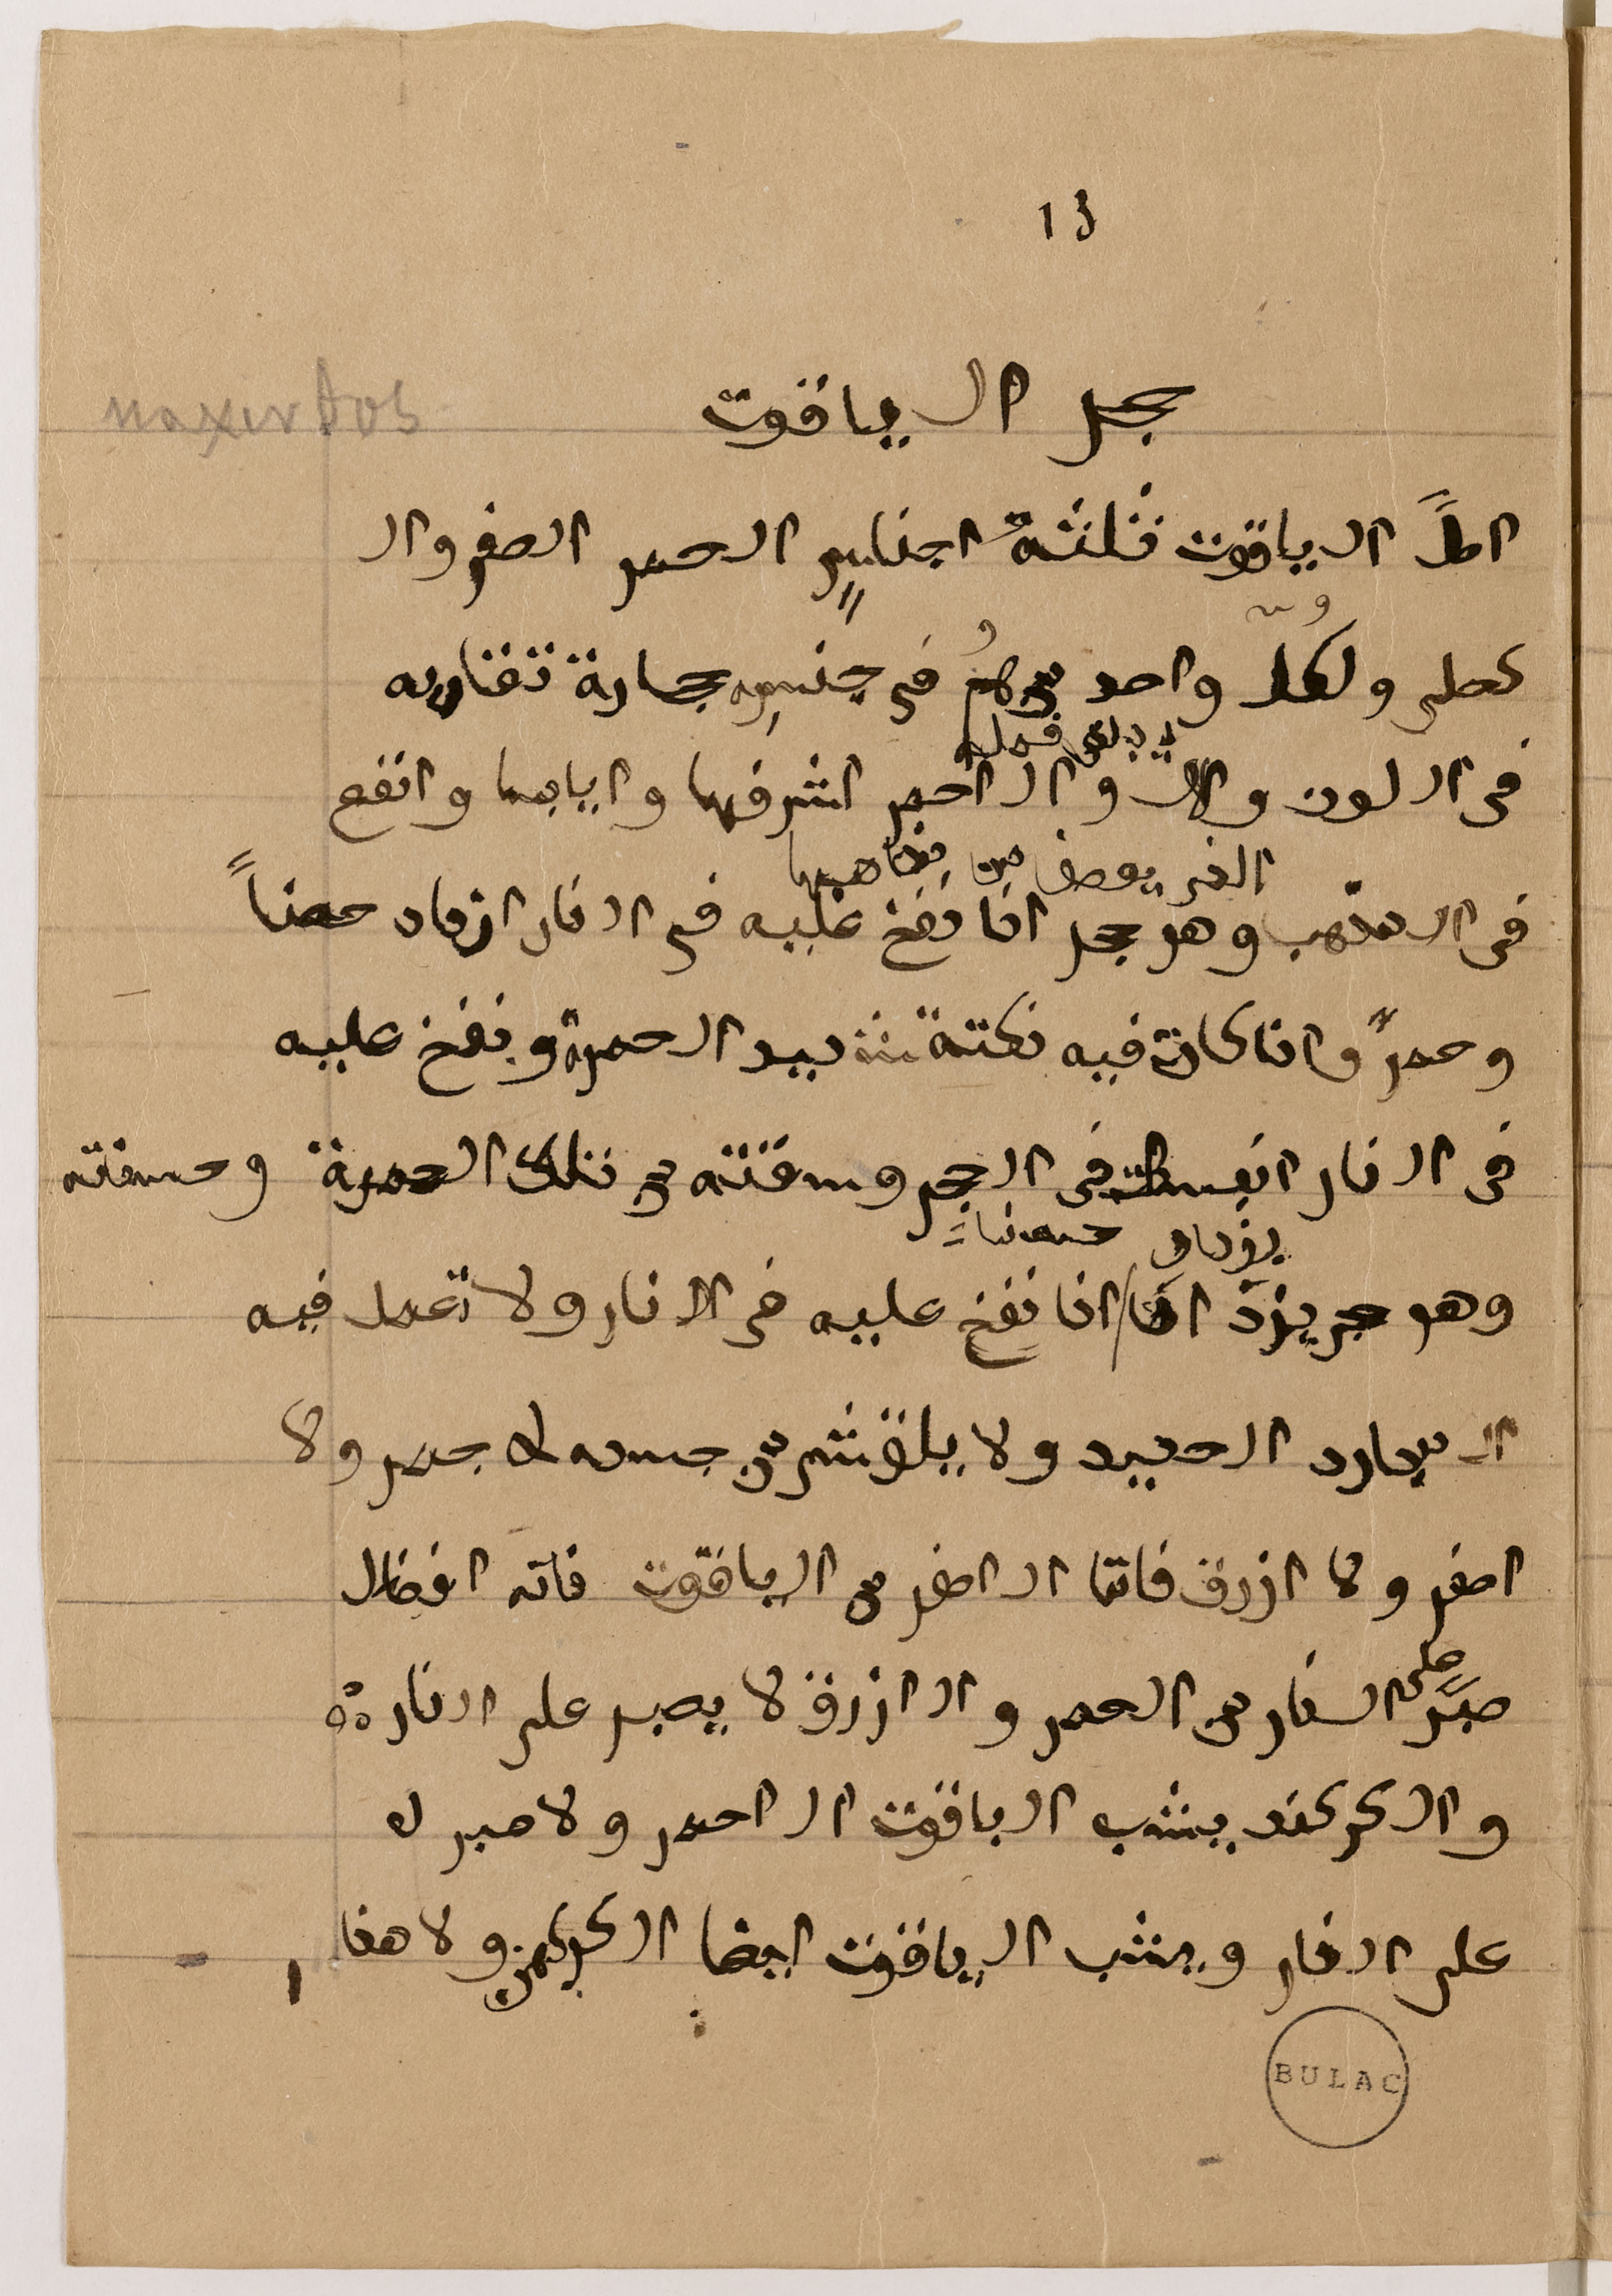 13
حجر الياقوت
υακινθος
امّا الياقوت ثلثة اجناس الحمر الصفر وال
كحلى ولكل واحد منهم فى جنسه حجارة تقاربه
فى اللون والا والاحمر اشرفها وايابسا وانفع
فى المذهب وهو حجر اذا نفخ عليه فى النار ازداد حسناً
وحمرً واذا كانت فيه نكتة شديد الحمرة ونفخ عليه
فى النار انبسطت فى الحجر وسقته من تلك الحمرة وحسنته
يزداد حسنا
وهو حجر يزد اذا نفخ عليه فى النار ولا تعمل فيه
المبارد الحديد ولا يلز شى من جسده لا حمر ولا
اصفر ولا ازرق فاما الاصفر من الياقوت فانه افضال
صبر على النار من الحمر والازرق لا يصبر على النار
والكركند يشب الياقوت الاحمر ولا صبر له
على النار ويشب الياقوت ايضا الكركهن ولا هذا
BULAC